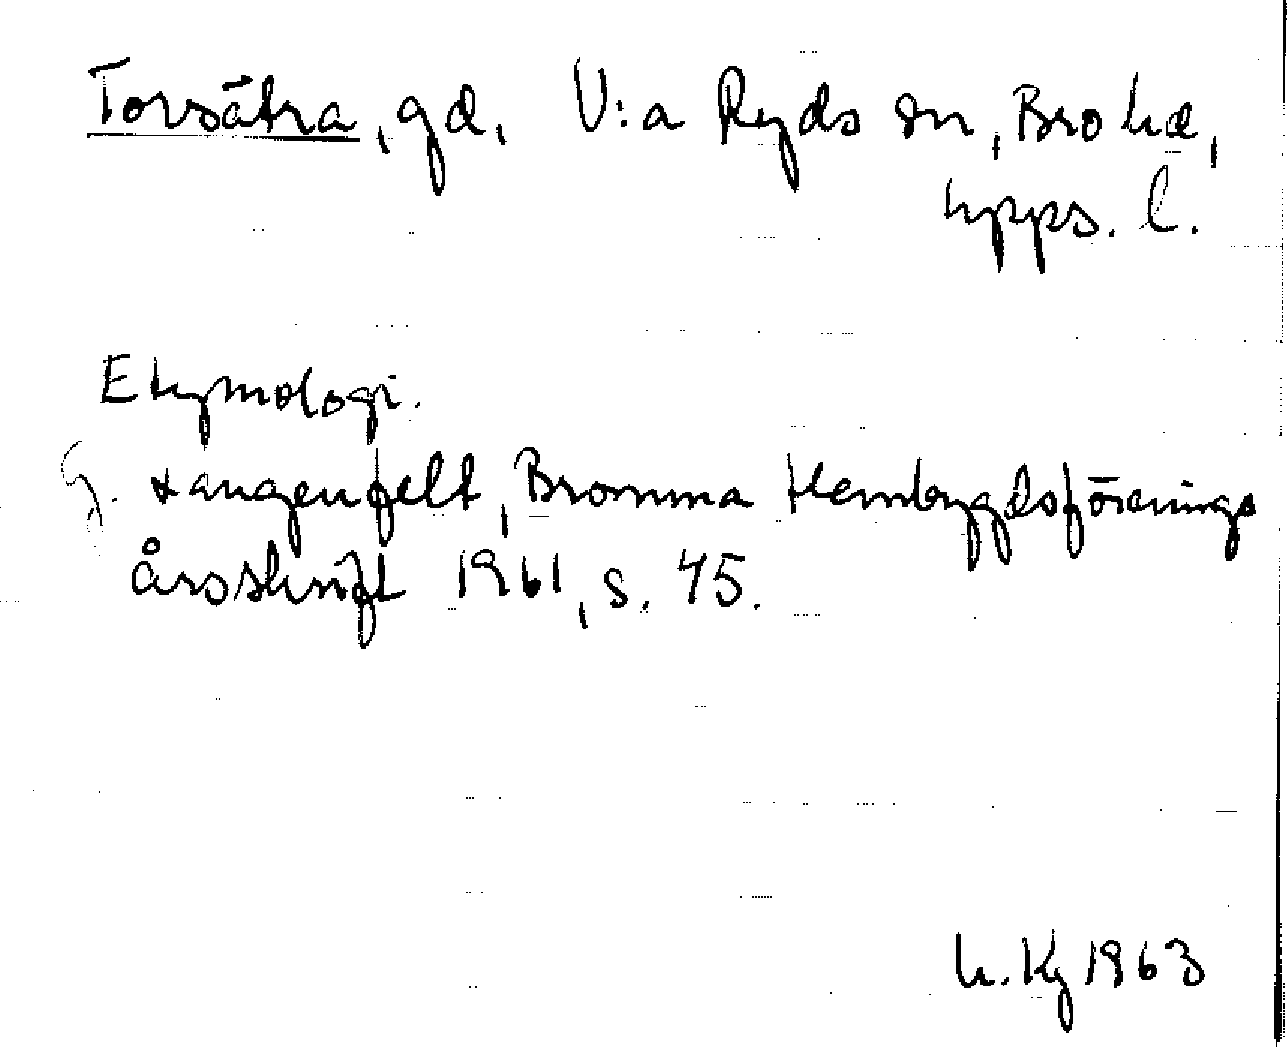 Torsätra, gd, V:a Ryds sn, Bro hd,
Upps. l.
Etymologi.
G. Langenfelt, Bromma Hembygdsförenings
årsskrift 1961, s. 45.
U. Kg 1963